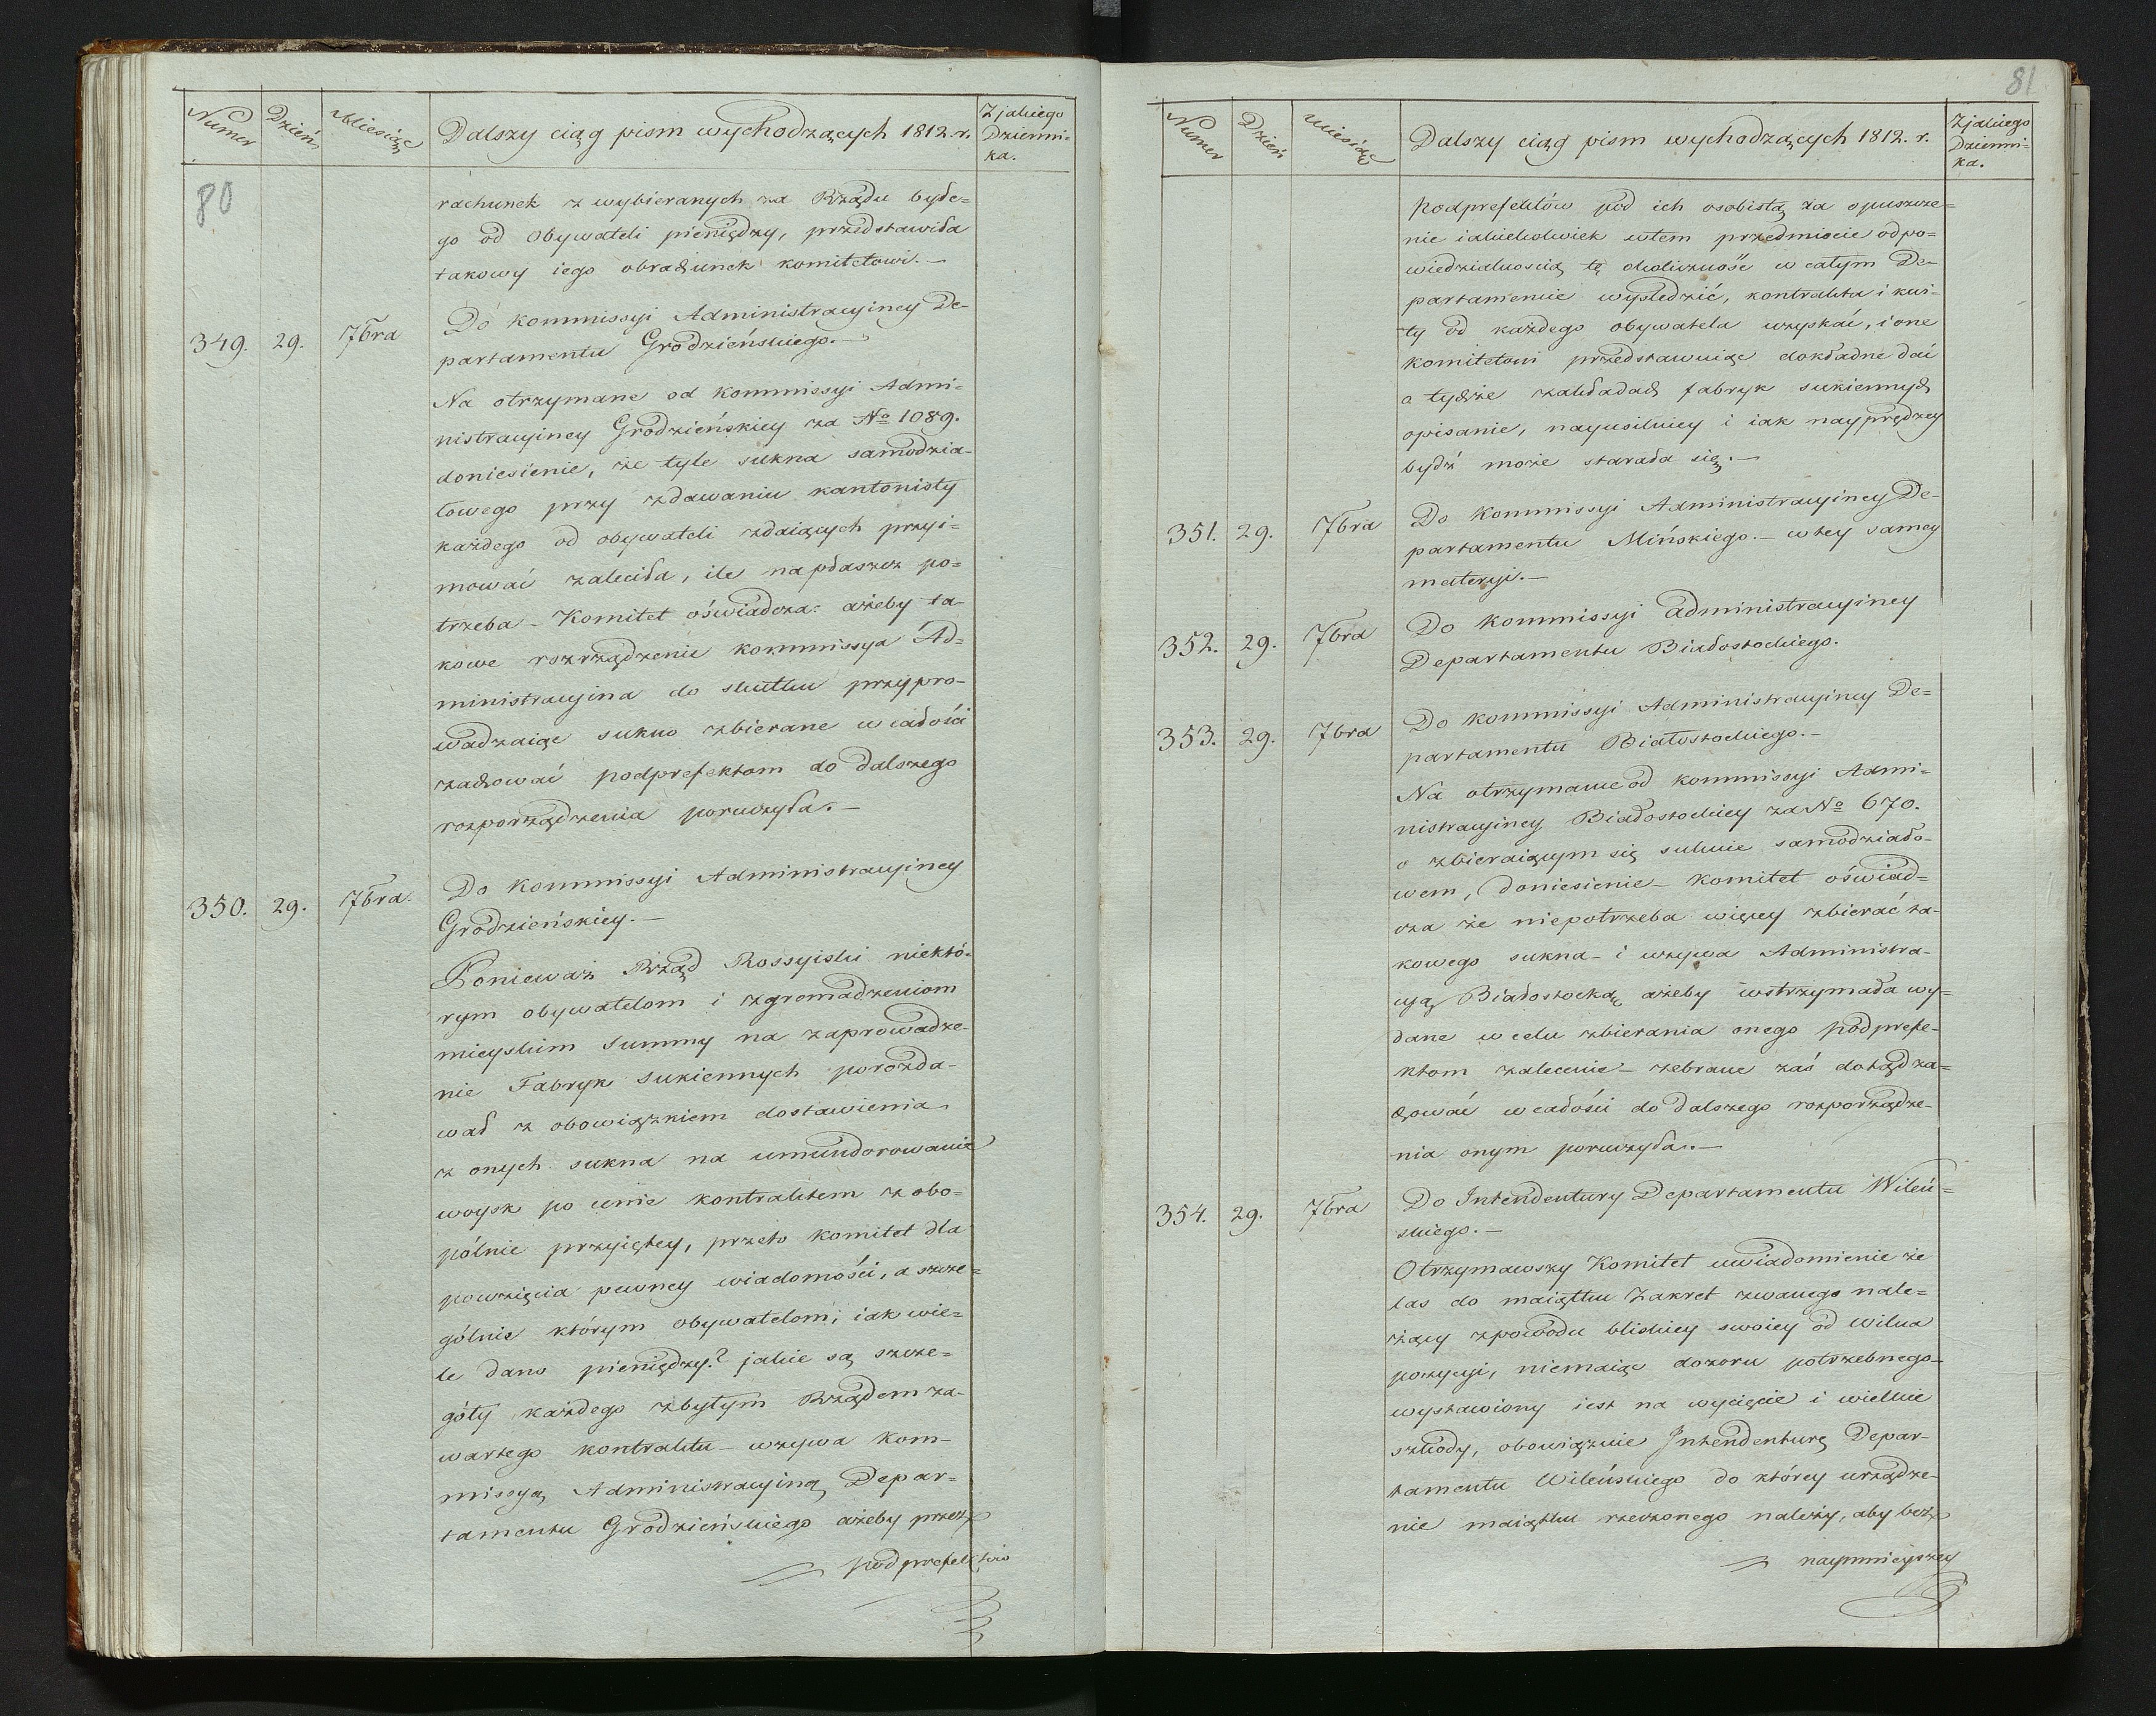 Numer Dzień Miesiąc Dalszy ciąg pism wychodzących 1812. r. Z jakiego Dzienni=
ka.
80
rachunek z wybieranych za Rządu byłe=
go od Obywateli pieniędzy, przedstawiła
takowy iego obrachunek komitetowi.—
349. 29. 7bra Do kommissyi Administracyiney De-
partamentu Grodzieńskiego.—
Na otrzymane od kommissyi Admi-
nistracyiney Grodzieńskiey za No 1089.
doniesienie, że tyle sukna samodzia-
łowego przy zdawaniu kantonisty
każdego od obywateli zdaiących przyi-
mować zaleciła, ile na płaszcz po=
trzeba — Komitet oświadcza: ażeby ta-
kowe rozrządzenie kommissya Ad=
ministracyina do skutku przypro-
wadzaiąc sukno zbierane w całości
zachować podprefektom do dalszego
rozporządzenia poruczyła.—
350. 29. 7bra. Do Kommissyi Administracyiney
Grodzieńskiey.—
Ponieważ Rząd Rossyiski niektó-
rym obywatelom i zgromadzeniom
mieyskim Summy na zaprowadze-
nie Fabryk Sukiennych porozda-
wał z obowiązkiem dostawienia
z onych sukna na umundorowanie
woysk po cenie kontraktem z obo=
pólnie przyiętey, przeto komitet dla
powzięcia pewney wiadomości, a szcze=
gólnie którym obywatelom; iak wie-
le dano pieniędzy? jakie są szcze=
góły każdego z byłym Rządem za-
wartego kontraktu — wzywa Kom-
missyą Administracyiną Depar=
tamentu Grodzieńskiego ażeby przez
podprefektów
81
Numer Dzień Miesiąc Dalszy ciąg pism wychodzących 1812. r. Z jakiego
Dzienni=
ka.
Podprefektów pod ich osobistą za opuszcze=
nie iakieikolwiek w tem przedmiocie odpo=
wiedzialnością tę okoliczność w całym De-
partamencie wyśledzić, kontrakta i kwi-
ty od każdego obywatela uzyskać, i one
komitetowi przedstawuiąc dokładne dać
o tychże zakładach fabryk sukiennych
opisanie, nayusilniey i iak nayprędzey
bydź może starała się.—
351. 29. 7bra Do Kommissyi Administracyiney De-
partamentu Mińskiego.— w tey samey
materyi.—
352. 29. 7bra Do Kommissyi administracyiney
Departamentu Białostockiego.
353. 29. 7bra Do kommissyi Administracyiney De=
partamentu Białostockiego.—
Na otrzymane od kommissyi Admi-
nistracyiney Białostockiey za No 670.
o zbieraiącym się suknie samodziało-
wem, doniesienie — komitet oświad=
cza że niepotrzeba więcey zbierać ta-
kowego sukna — i wzywa Administra-
cyą Białostocką ażeby wstrzymała wy=
dane w celu zbierania onego podprefe-
ktom zalecenie — zebrane zaś dotąd za=
chować w całości do dalszego rozporządze-
nia onym poruczyła.—
354. 29. 7bra Do Intendentury Departamentu Wileń=
skiego.—
Otrzymawszy Komitet uwiadomienie że
las do maiątku Zakret zwanego nale=
żący z powodu bliskiey swoiey od Wilna
pozycyi, niemaiąc dozoru potrzebnego
wystawiony iest na wycięcie i wielkie
szkody, obowiązuie Intendenturę Depar-
tamentu Wileńskiego do którey urządze-
nie maiątku rzeczonego należy, aby bez
naymnieyszey